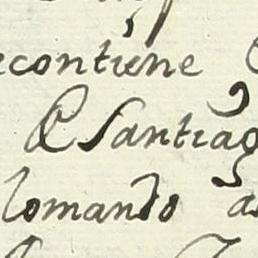 econtiene
Santiag
lomando a